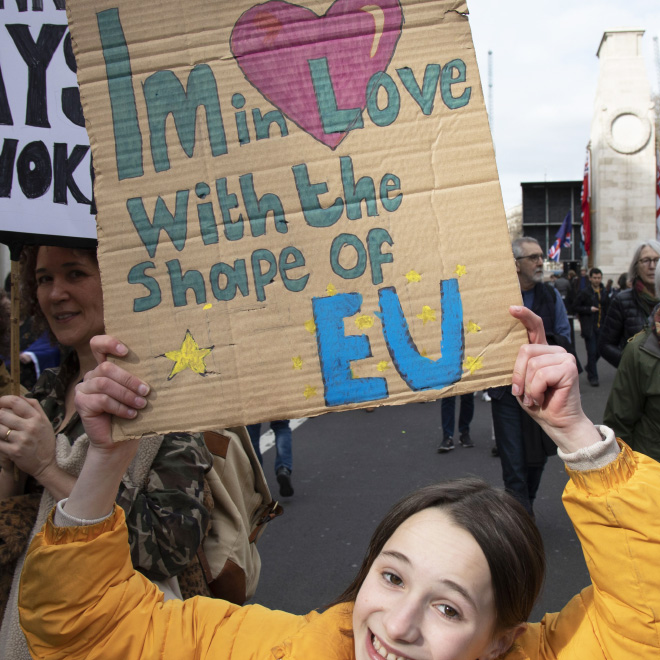 AYS
VOK
Im in Love
With the
shape of
EU